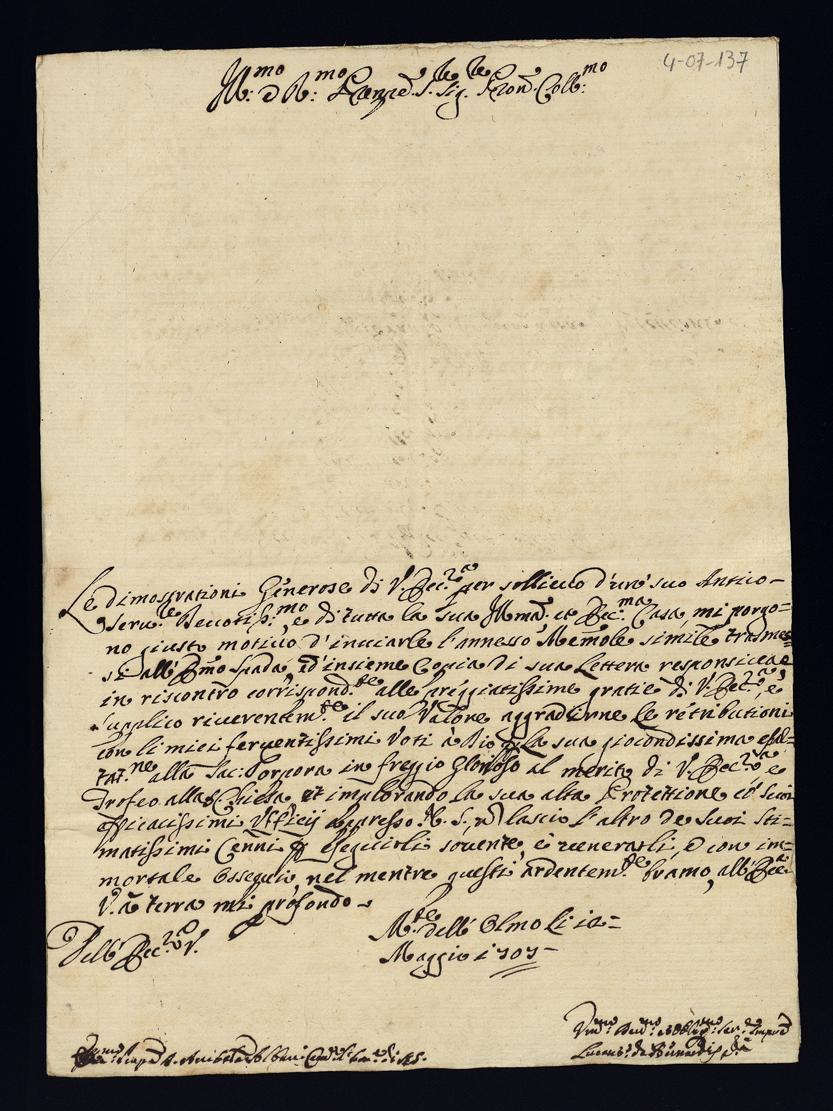 4-07-137
Ill:mo e R:mo Sig. Pron. Coll:mo
Le dimostrationi Generose di V. Ecc.za per sollievo d'un suo Antico
Serv.le Devotiss:mo, e di tutta la sua Ill.ma et Ecc.ma Casa, mi porgo=
no giusto motivo d'inviarle l'annesso Memole simile trasmes=
si all' Spada, ed'insieme Copia di sua Lettera responsiva
in riscontro corrispond.te alle preggiatissime gratie di V. Ecc.za, e
supplico riverentem.te il suo Valore aggradirne le retributioni
con li miei ferventissimi Voti à Dio la sua giocondissima esal=
tat.ne alla Sac: Porpora in freggio Glorioso al merito di V. Ecc.za e
Trofeo alla Chiesa et implorando la sua alta Protettione co' suoi
efficacissimi Ufficij appresso N. S. lascio l'altro de suoi Sti=
matissimi Cenni Esseguirli sovente, e venerarli, e con im=
mortale Ossequio, nel mentre questi ardentem.te bramo, all' Ecc.
V. à terra mi profondo
Dell' Ecc.za V. M.te dell' Olmo li
Maggio 1707
Um:mo Dev:mo Obblig:mo Ser.